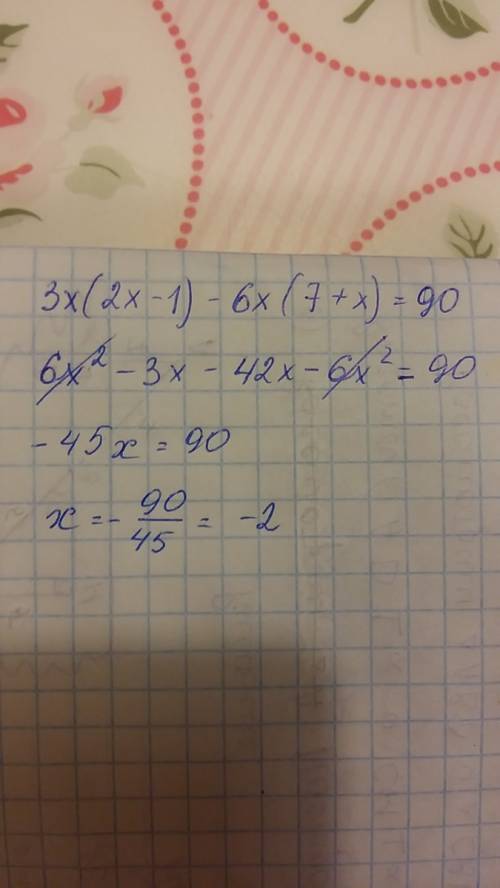 3x(2x-1) - 6x(7+x) = 90
6x² - 3x - 42x - 6x² = 90
-45x = 90
x = - 90/45 = -2